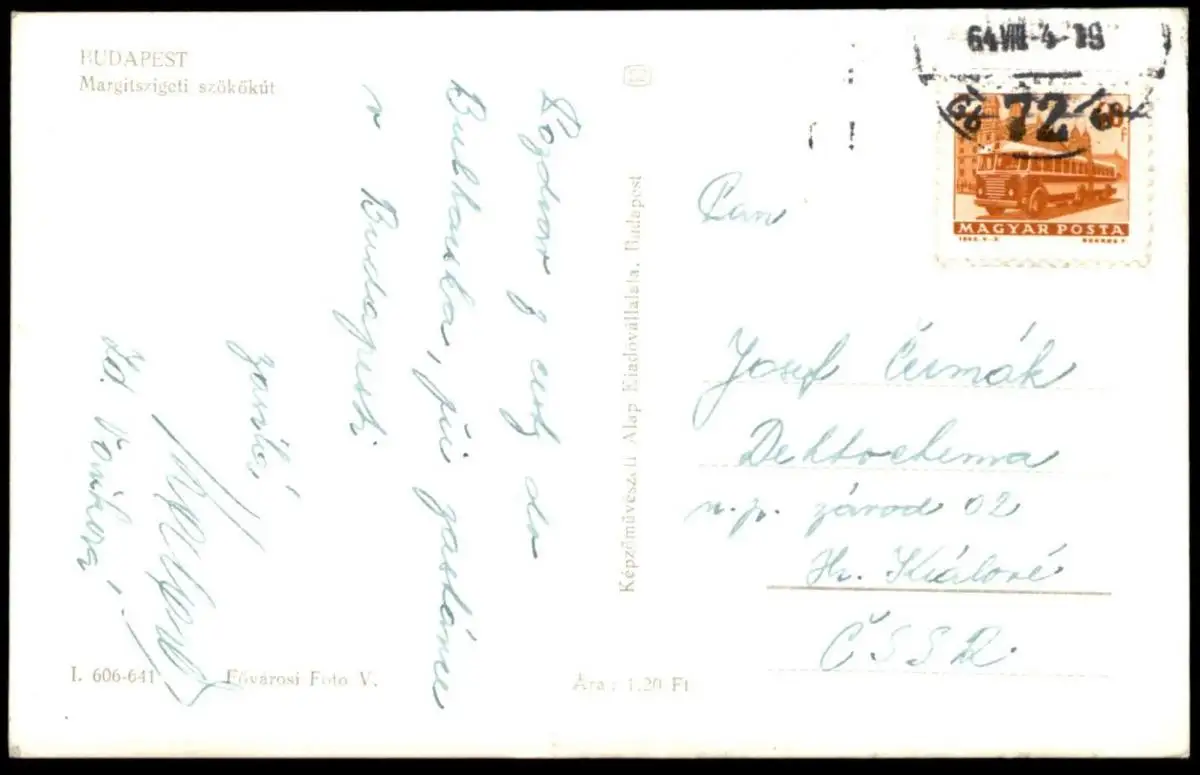 BUDAPEST
Margitszigeti szökőkút
Pozdrav z cesty do
Bulharska, při zastávce
v Budapešti
zasílá
Képzőművészeti Alap Kiadóvállalata, Budapest
64 VIII-4-19
72
MAGYAR POSTA
Pan
Josef Čermák
Dehtochema
n.p. závod 02
Hr. Králové
ČSSR.
I. 606-641
Fővárosi Foto V.
Ára: 1.20 Ft